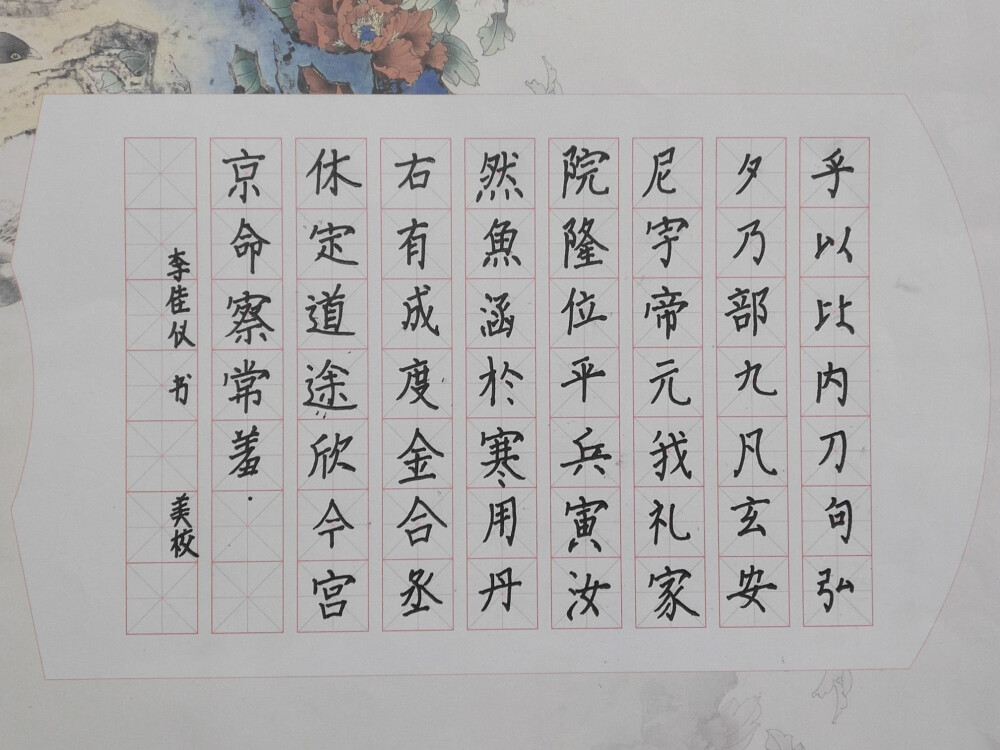 乎以比内刀句弘
夕乃部九凡玄安
尼宇帝元我礼家
院隆位平兵寅汝
然魚涵於寒用丹
右有成度金合丞
休定道途欣今宫
京命察常羞.
李佳仪 书 美校